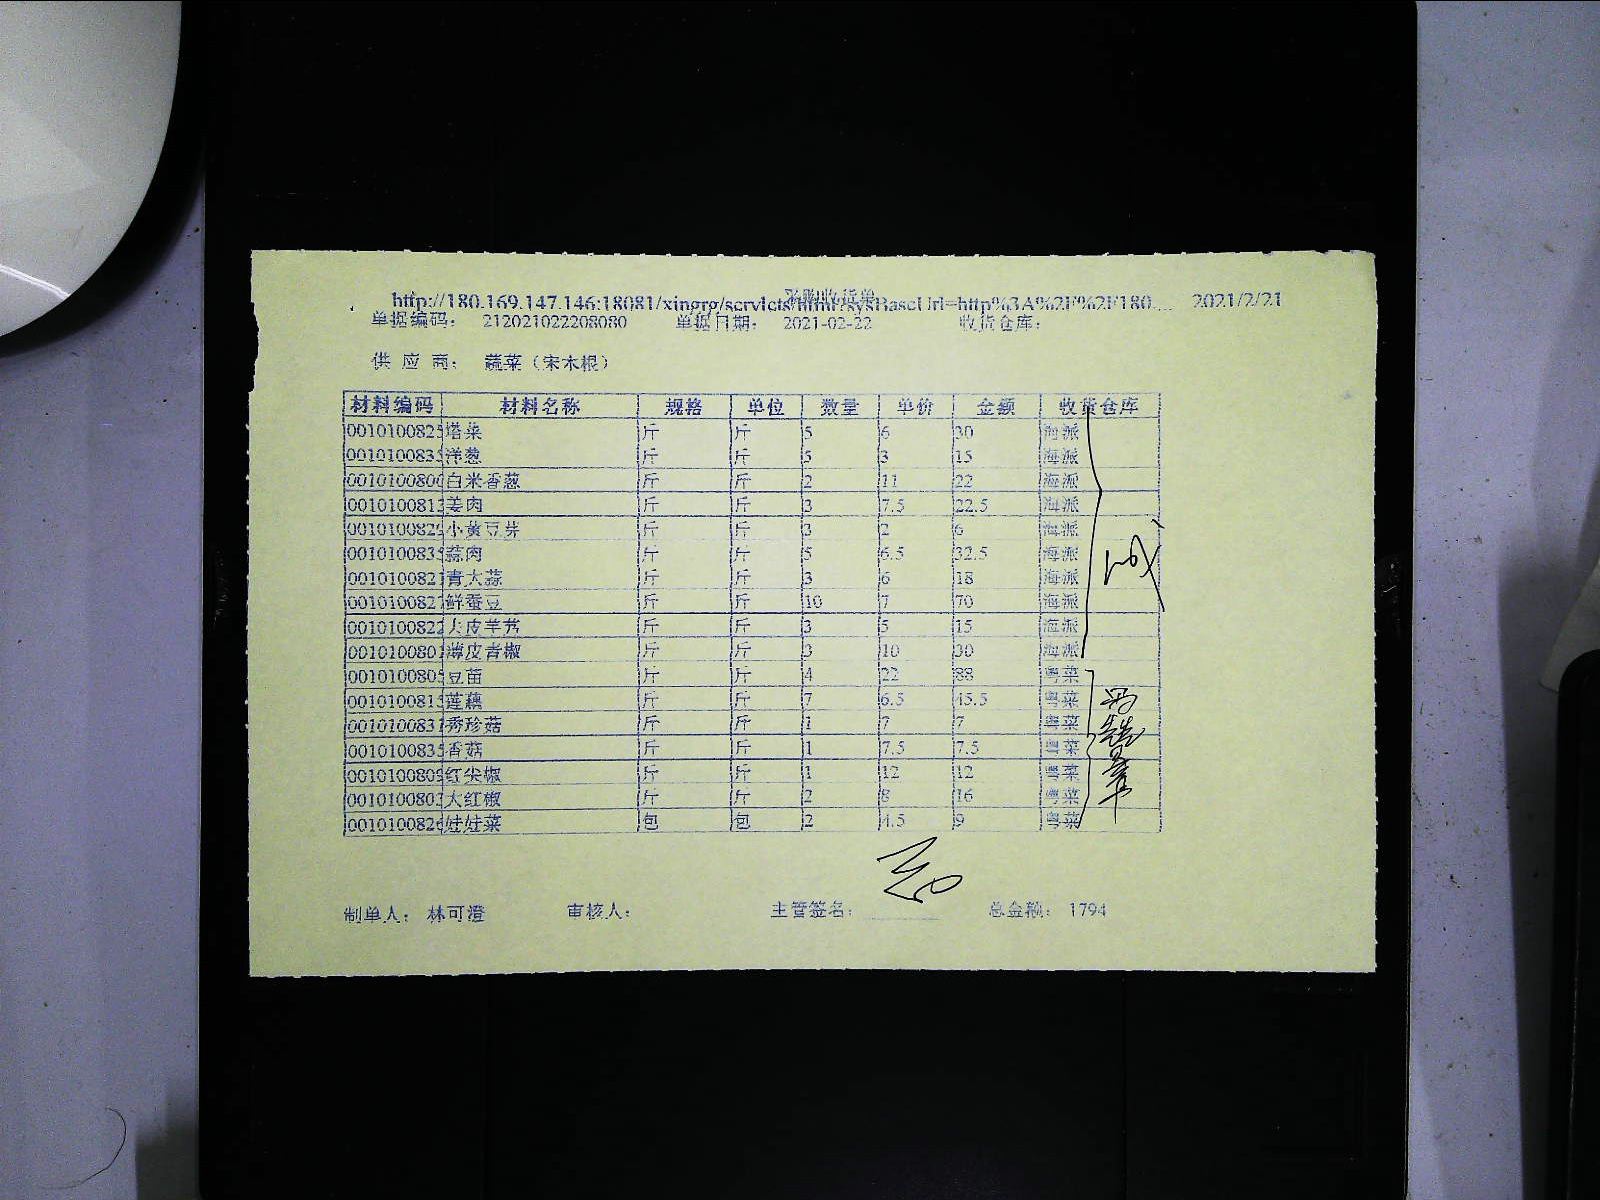 采购收货单
http://180.169.147.146:18081/xingrg/servlets/html?sysBaseUrl=http%3A%2F%2F180.... 2021/2/21
单据编码: 212021022208080 单据日期: 2021-02-22 收货仓库:
供 应 商: 蔬菜(宋木根)
材料编码 材料名称 规格 单位 数量 单价 金额 收货仓库
0010100825 塔菜 斤 斤 5 6 30 海派
0010100835 洋葱 斤 斤 5 3 15 海派
0010100800 白米香葱 斤 斤 2 11 22 海派
0010100813 姜肉 斤 斤 3 7.5 22.5 海派
0010100829 小黄豆芽 斤 斤 3 2 6 海派
0010100835 蒜肉 斤 斤 5 6.5 32.5 海派
0010100821 青大蒜 斤 斤 3 6 18 海派
0010100827 鲜蚕豆 斤 斤 10 7 70 海派
0010100822 大皮芋艿 斤 斤 3 5 15 海派
0010100801 薄皮青椒 斤 斤 3 10 30 海派
0010100805 豆苗 斤 斤 4 22 88 粤菜
0010100815 莲藕 斤 斤 7 6.5 45.5 粤菜
0010100831 秀珍菇 斤 斤 1 7 7 粤菜
0010100835 香菇 斤 斤 1 7.5 7.5 粤菜
0010100809 红尖椒 斤 斤 1 12 12 粤菜
0010100803 大红椒 斤 斤 2 8 16 粤菜
0010100826 娃娃菜 包 包 2 4.5 9 粤菜
制单人: 林可澄 审核人: 主管签名: 总金额: 1794